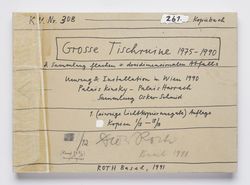 K.W. Nr. 308 267. Kopiebuch
Grosse Tischruine 1975-1990
& Sammlung flachen + dreidimensionalen Abfalls
Umzug & Installation in Wien 1990
Palais Kinsky - Palais Harrach
Sammlung Oskar Schmid
1. (einzige Lichtkopierausgabe) Auflage
Kopien
/12 Roth
Basel 1991
ROTH Basel, 1991